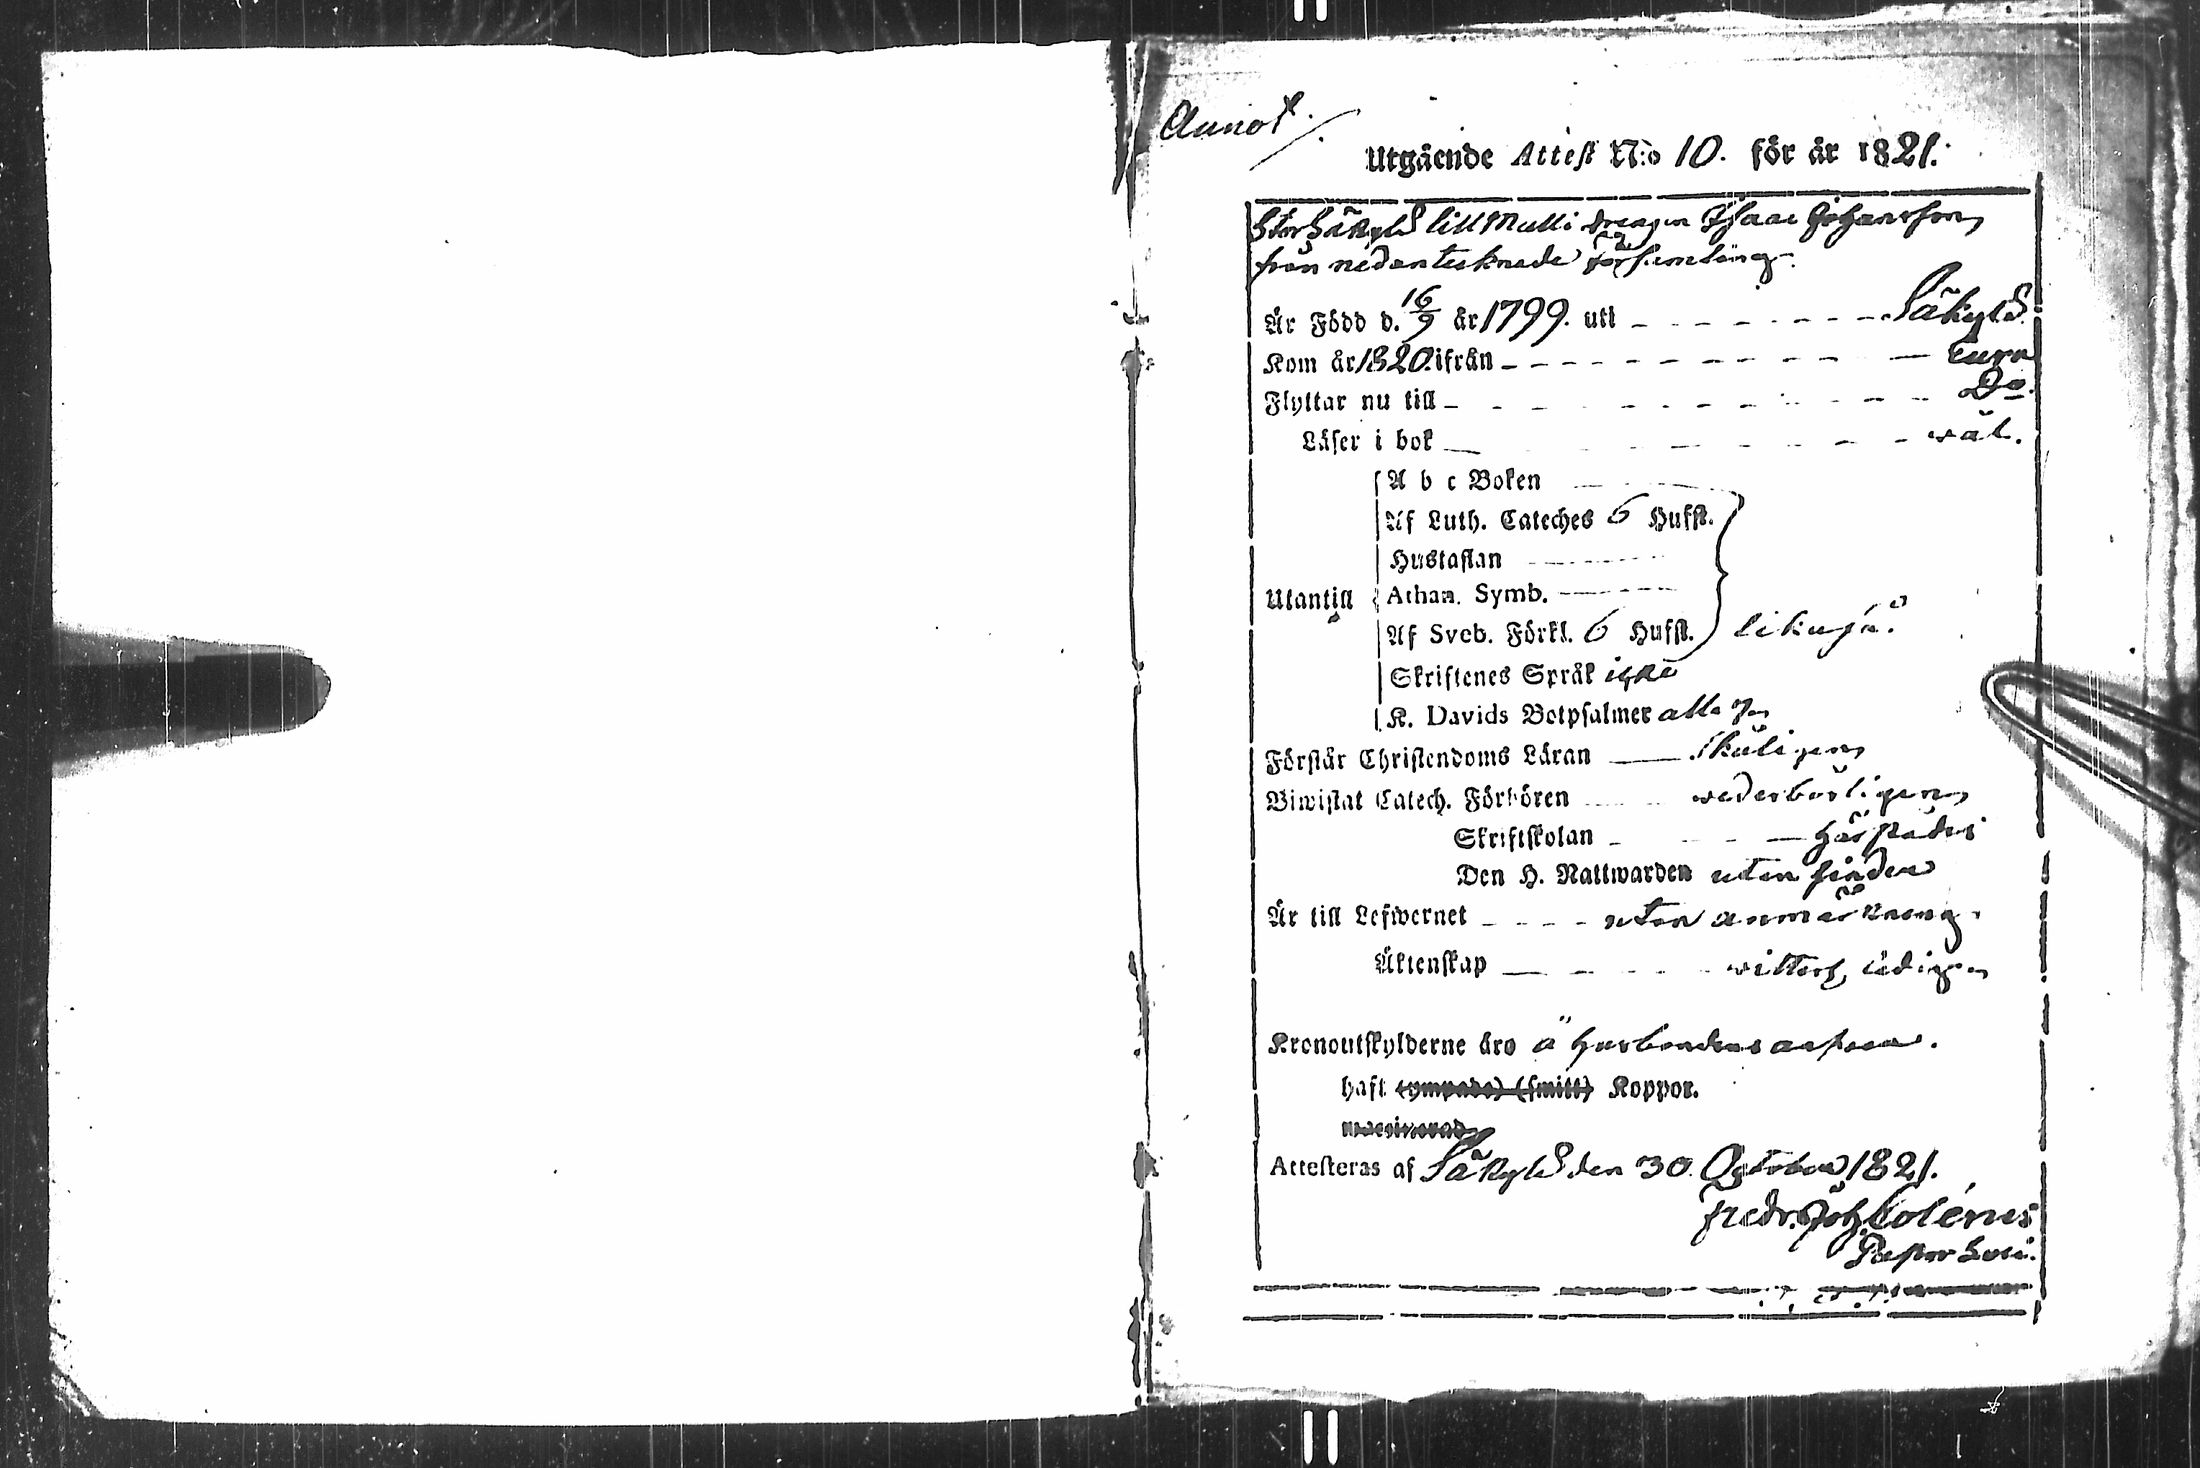 Annot.
Utgående Attest N:o 10. för år 1821.
Stor Säkylä Lill Mulli drengen Isaac Johansson,
från nedantecknade Församling.
Är Född d. 16/9 år 1799. uti Säkylä.
Kom år 1820. ifrån Eura
Flyttar nu till Do.
Läser i bok wäl.
A b c Boken
Af Luth. Cateches 6 Hufst.
Hustaflan
Utantill Athan. Symb.
Af Sveb. Förkl. 6 Hufst. likaså.
Skriftenes Språk icke
K. Davids Botpsalmer alla 7
Förstår Christendoms Läran skäligen
Biwistat Catech. Förhören wederbörligen
Skriftskolan härstädes
Den H. Nattwarden utan hinder
Är till Lefwernet utan anmärkning.
Äktenskap ledig
Kronoutskylderne äro å husbondens answar.
haft (ympade) (smitt) Koppor.
waccinerad
Attesteras af Säkylä den 30. October 1821.
Fredr. Joh. Colénus
Pastor Loci.